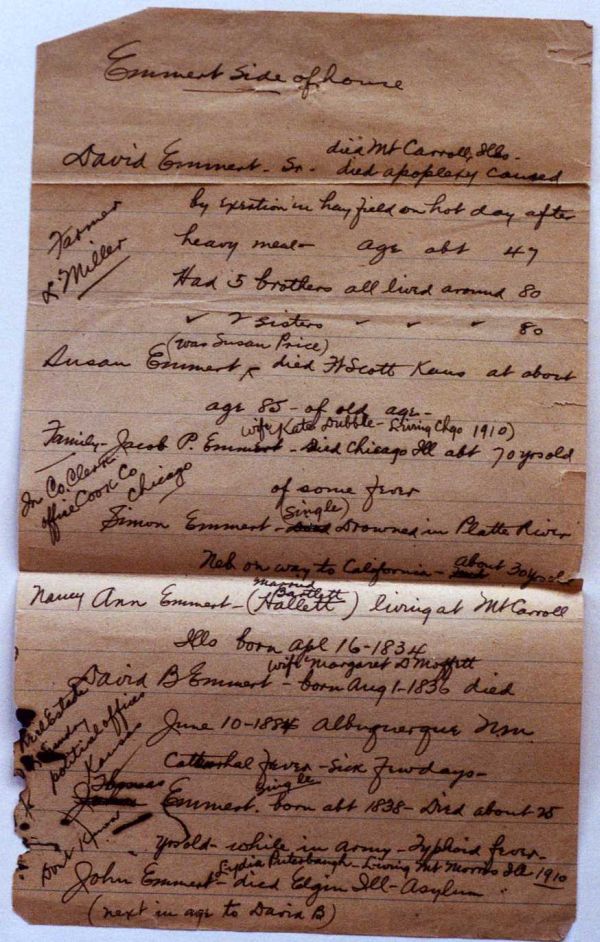 Emmert Side of house
died Mt Carroll, Ills.
David Emmert - Sr. died apoplexy caused
by exertion in hay field on hot day after
Farmer
& Miller
heavy meal - age abt 47
Had 5 brothers all lived around 80
✓ 2 sisters ✓ ✓ ✓ 80
(was Susan Price)
Susan Emmert, died Ft Scott Kans at about
age 85 - of old age -
wife Kate Dubble - Living Chgo 1910)
Family - Jacob P. Emmert - Died Chicago Ill abt 70 yrs old
In Co. Clerk
office Cook Co
Chicago
of some fever
(Single)
Simon Emmert - Died Drowned in Platte River
about
Neb on way to California - 30 yrs old
married
Bartlett
Nancy Ann Emmert - (Hallett) living at Mt Carroll
Ills born apl 16 - 1834
wife Margaret D Moffett
David B Emmert - born Aug 1 - 1836 died
Real Estate
political offices
Kansas
June 10 - 1884 Albuquerque Nm
Catharrhal fever - sick few days -
Thomas
single
James Emmert. born abt 1838 - Died about 25
Dont Know
yrs old - while in army - Typhoid fever -
Lydia Puterbaugh - Living Mt Morris Ill 1910
John Emmert - died Elgin Ill - Asylum
(next in age to David B)